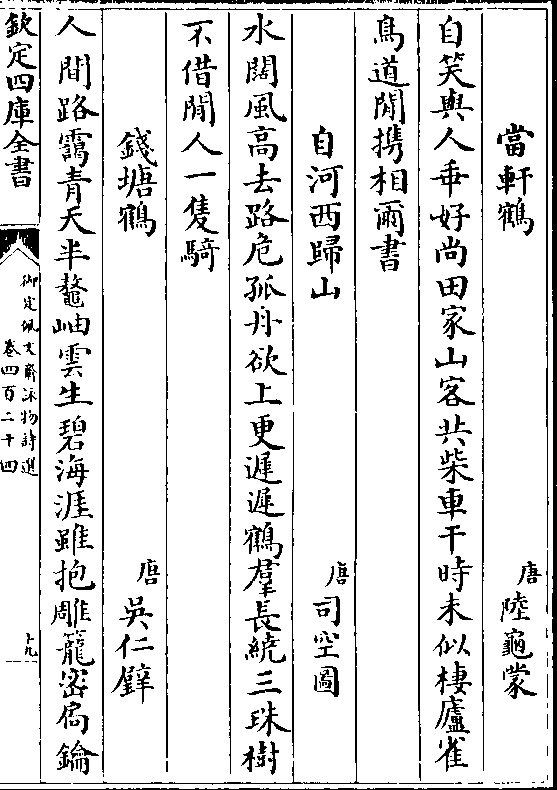 當軒鶴
唐 陸龜蒙
自笑與人乖好尚田家山客共柴車干時未似棲廬雀
鳥道閒携相爾書
自河西歸山
唐 司空圖
水闊風高去路危孤舟欲上更遲遲鶴羣長繞三珠樹
不借閒人一隻騎
錢塘鶴
唐 吳仁璧
人間路靄青天半鼇岫雲生碧海涯雖抱雕籠密扃鑰
欽定四庫全書
御定佩文齋詠物詩選
卷四百二十四
十九